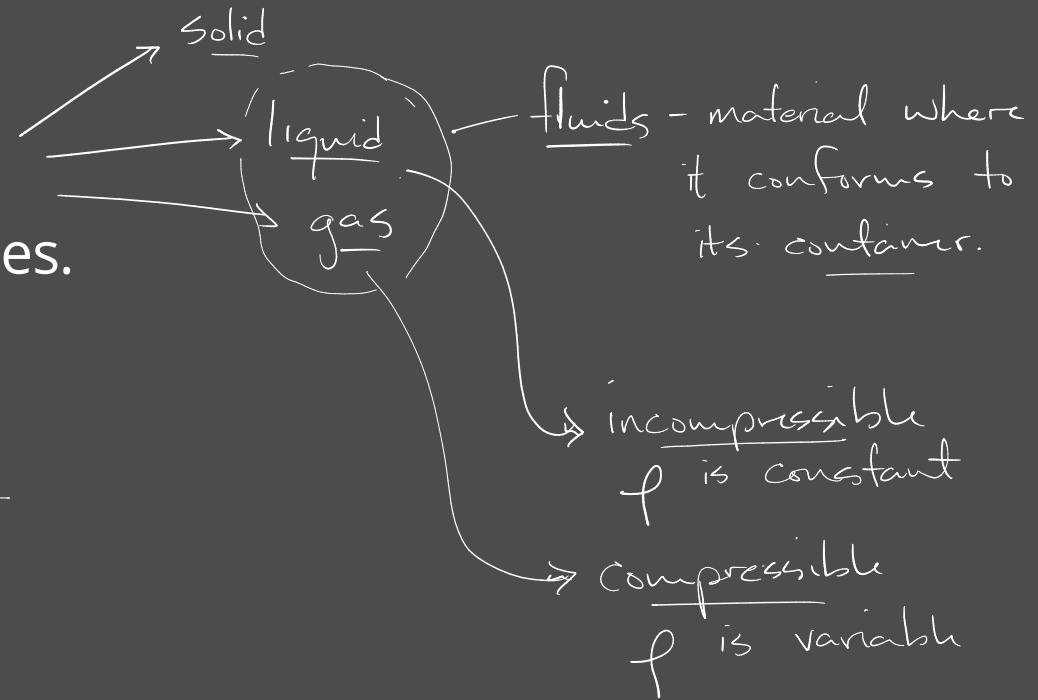 solid
liquid
gas
es.
fluids - material where
it conforms to
its container.
incompressible
ρ is constant
compressible
ρ is variable